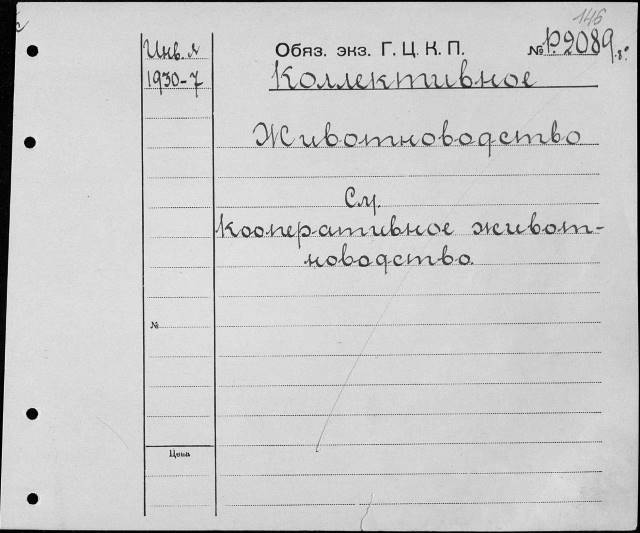 146
Инв. л
1930-7
Обяз. экз. Г. Ц. К. П.
№ Р.2089 g.8°
Коллективное
Животноводство
См.
Кооперативное живот-
новодство.
№
Цена